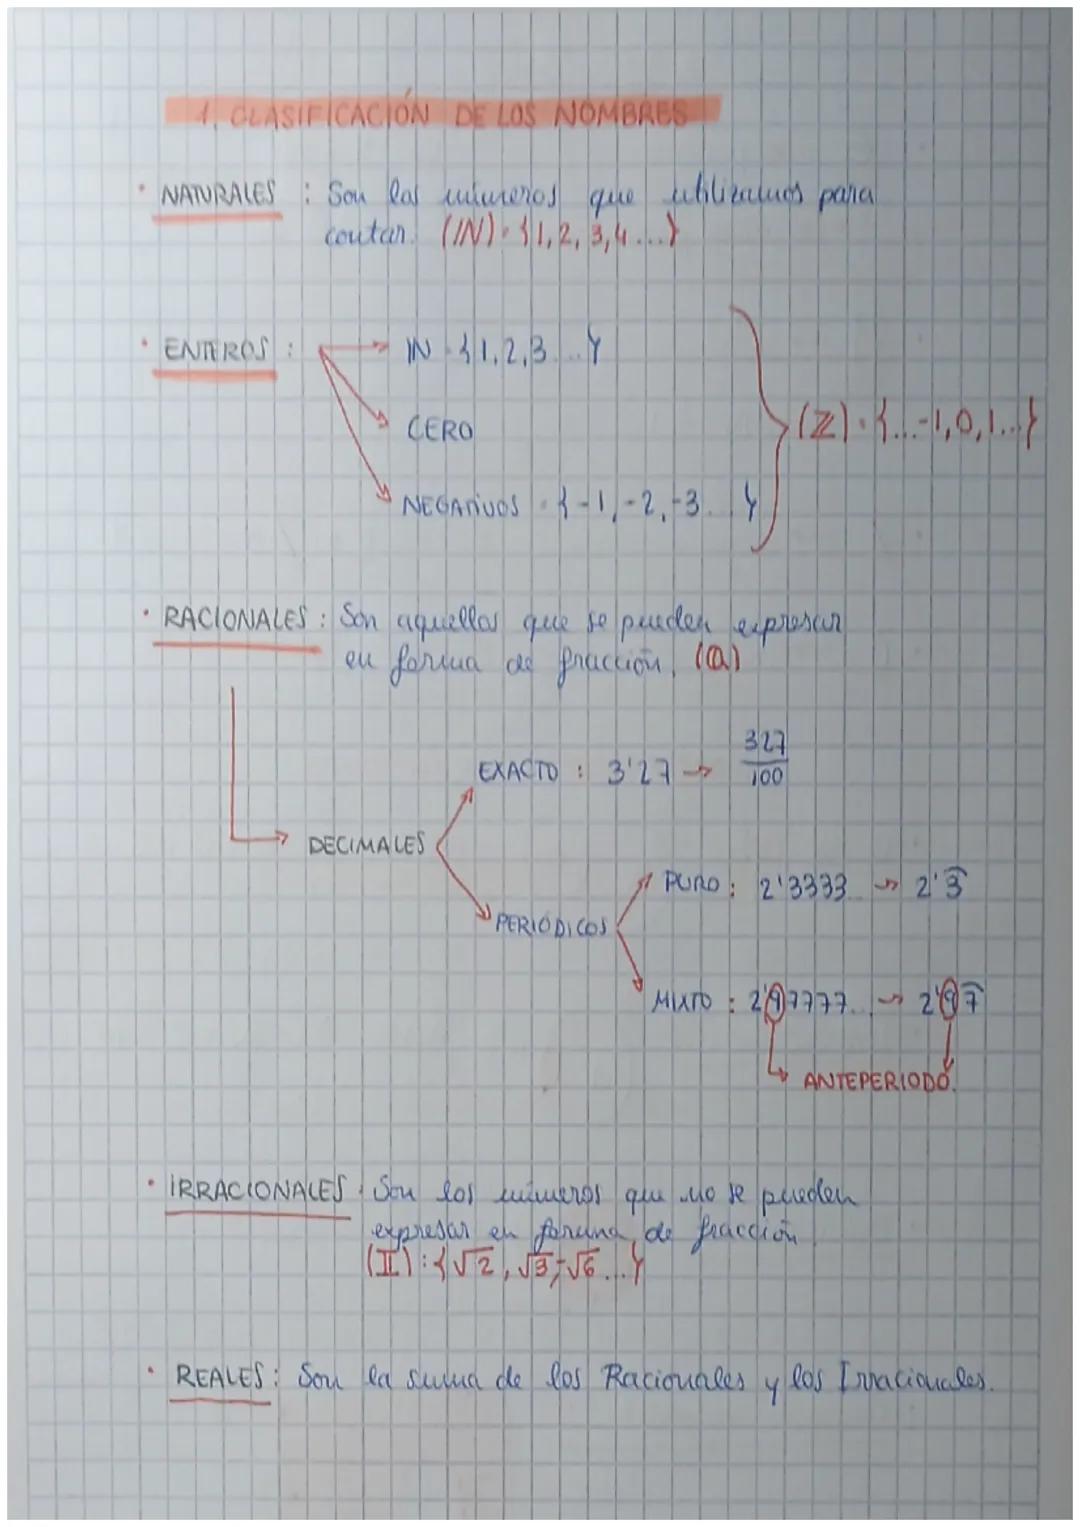 1. CLASIFICACIÓN DE LOS NOMBRES
· NATURALES : Son los números que utilizamos para
contar. (ℕ) = {1, 2, 3, 4...}
· ENTEROS : → ℕ = {1, 2, 3...}
→ CERO
(ℤ) = {...-1, 0, 1...}
→ NEGATIVOS = {-1, -2, -3...}
· RACIONALES : Son aquellos que se pueden expresar
en forma de fracción. (ℚ)
EXACTO : 3'27 → 327/100
→ DECIMALES
PURO : 2'3333... → 2'3̂
PERIÓDICOS
MIXTO : 2'97777... → 2'97̂
ANTEPERIODO.
· IRRACIONALES : Son los números que no se pueden
expresar en forma de fracción
(𝕀) : {√2, √3, -√6...}
· REALES : Son la suma de los Racionales y los Irracionales.